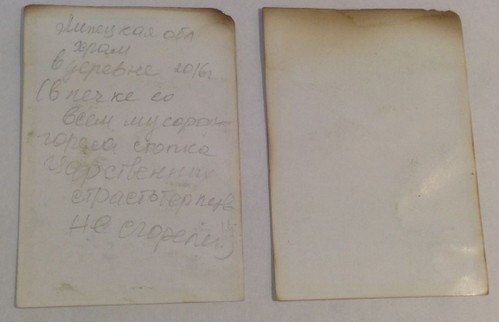 Липецкая обл
храм
в деревне 2016г
(в печке со
всем мусором
горела стопка
Царственных
страстотерпцев
не сгорели)